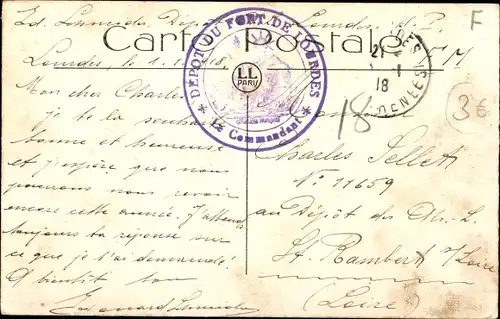 Ed. Schneider, Dépôt
Lourdes, H. P.
F
Carte Postale
F. M
Lourdes le 1. 1. 18
DÉPÔT DU FORT DE LOURDES
Le Commandant
LL
PARIS
21
18
18
3€
Mon cher Charles
je te la souhaite
bonne et heureuse
et j'espère que nous
pourrons nous revoir
encore cette année. J'attends
toujours ta réponse sur
ce que je t'ai demandé.
A bientôt ton
Edouard Schneider
Charles Selleti
N° 11659
au Dépôt des Al. L.
St. Rambert s/Loire
(Loire)